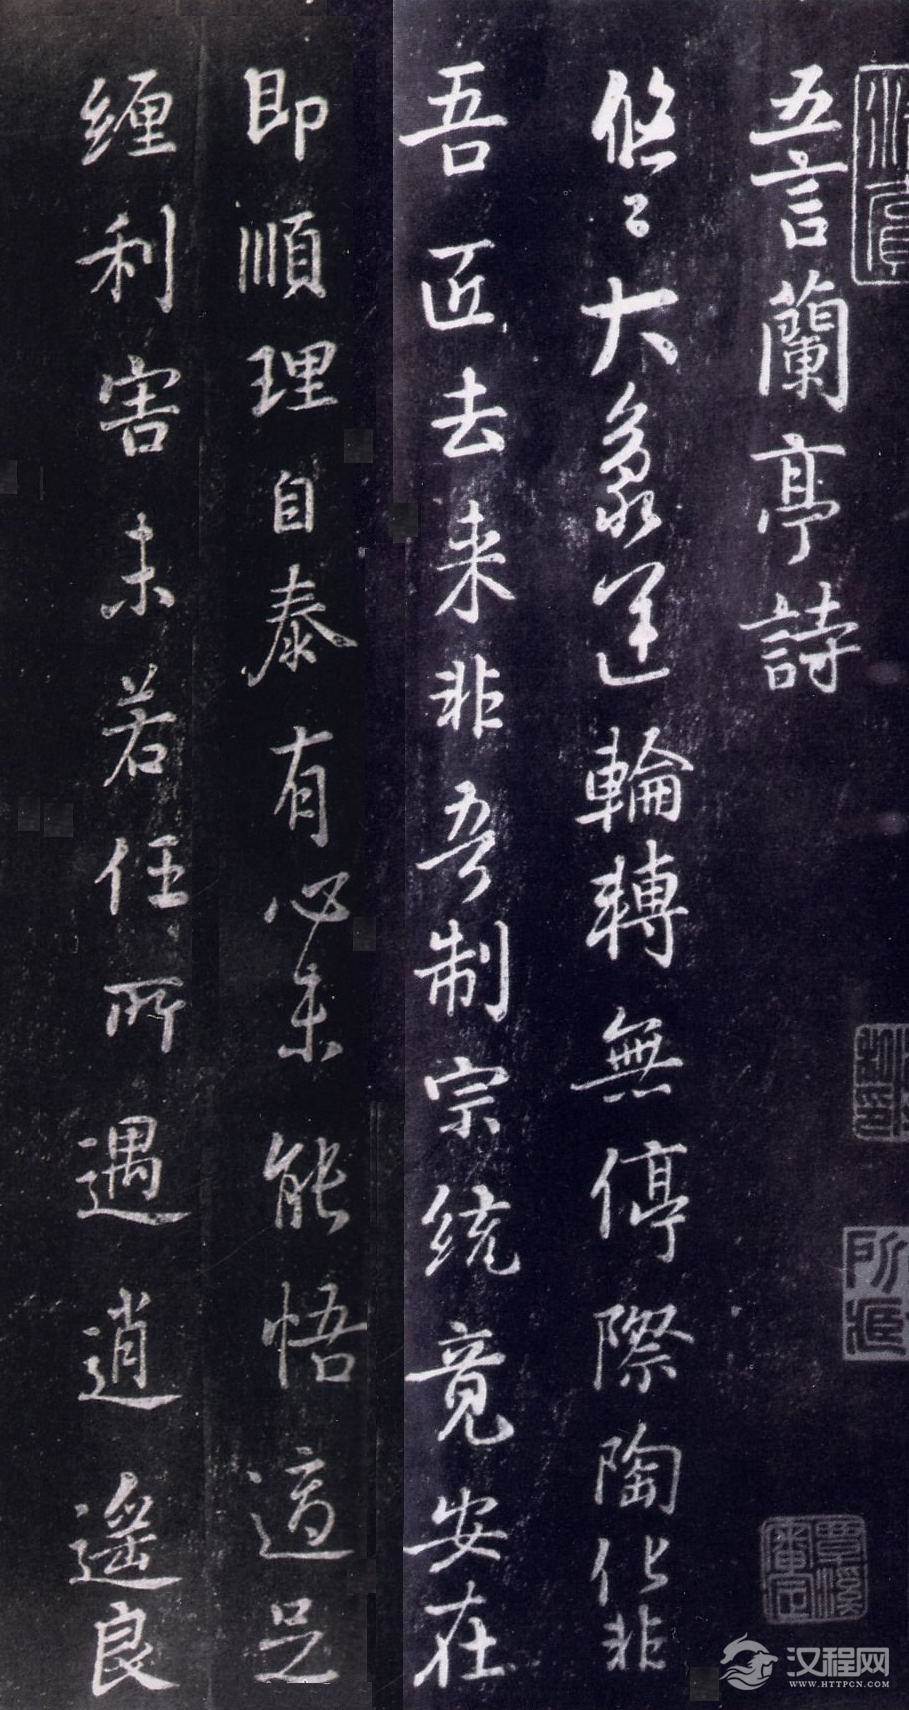 五言蘭亭詩
悠〻大象運輪轉無停際陶化非
吾匠去来非吾制宗統竟安在
即順理自泰有心未能悟適足
緾利害未若任所遇逍遙良
覃溪審定
汉程网
WWW.HTTPCN.COM